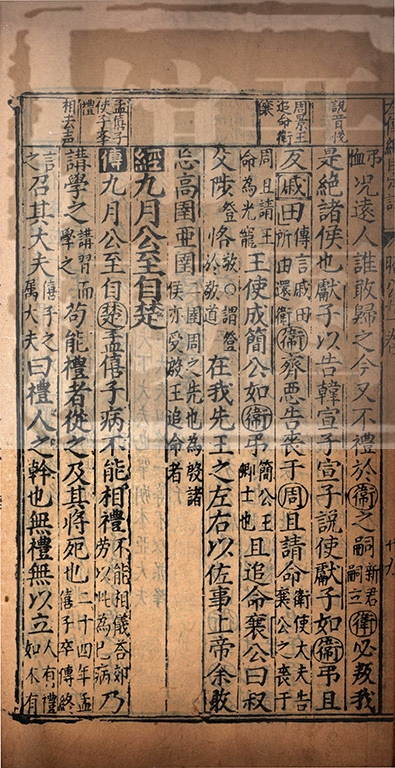 弔恤况遠人誰敢歸之今又不禮於衞之嗣新君嗣立衞必叛我
說音悅
是絕諸侯也獻子以告韓宣子宣子說使獻子如衞弔且
反戚田傳言戚田所由還衞衞齊惡告喪于周且請命衞使大夫告襄公之喪于
周景王追命衞襄
周且請王命為光寵王使成簡公如衞弔簡公王卿士也且追命襄公曰叔
父陟登恪敬○謂登於敬道在我先王之左右以佐事上帝余敢
忘高圉亞圉二圉周之先也為殷諸侯亦受殷王追命者
經九月公至自楚
孟僖子使子孝禮
傳九月公至自楚孟僖子病不能相禮不能相儀荅郊勞以此為己病乃
相去声
講學之講習學之而苟能禮者從之及其將死也二十四年孟僖子卒傳終
言之召其大夫僖子之屬大夫曰禮人之幹也無禮無以立人有禮如木有